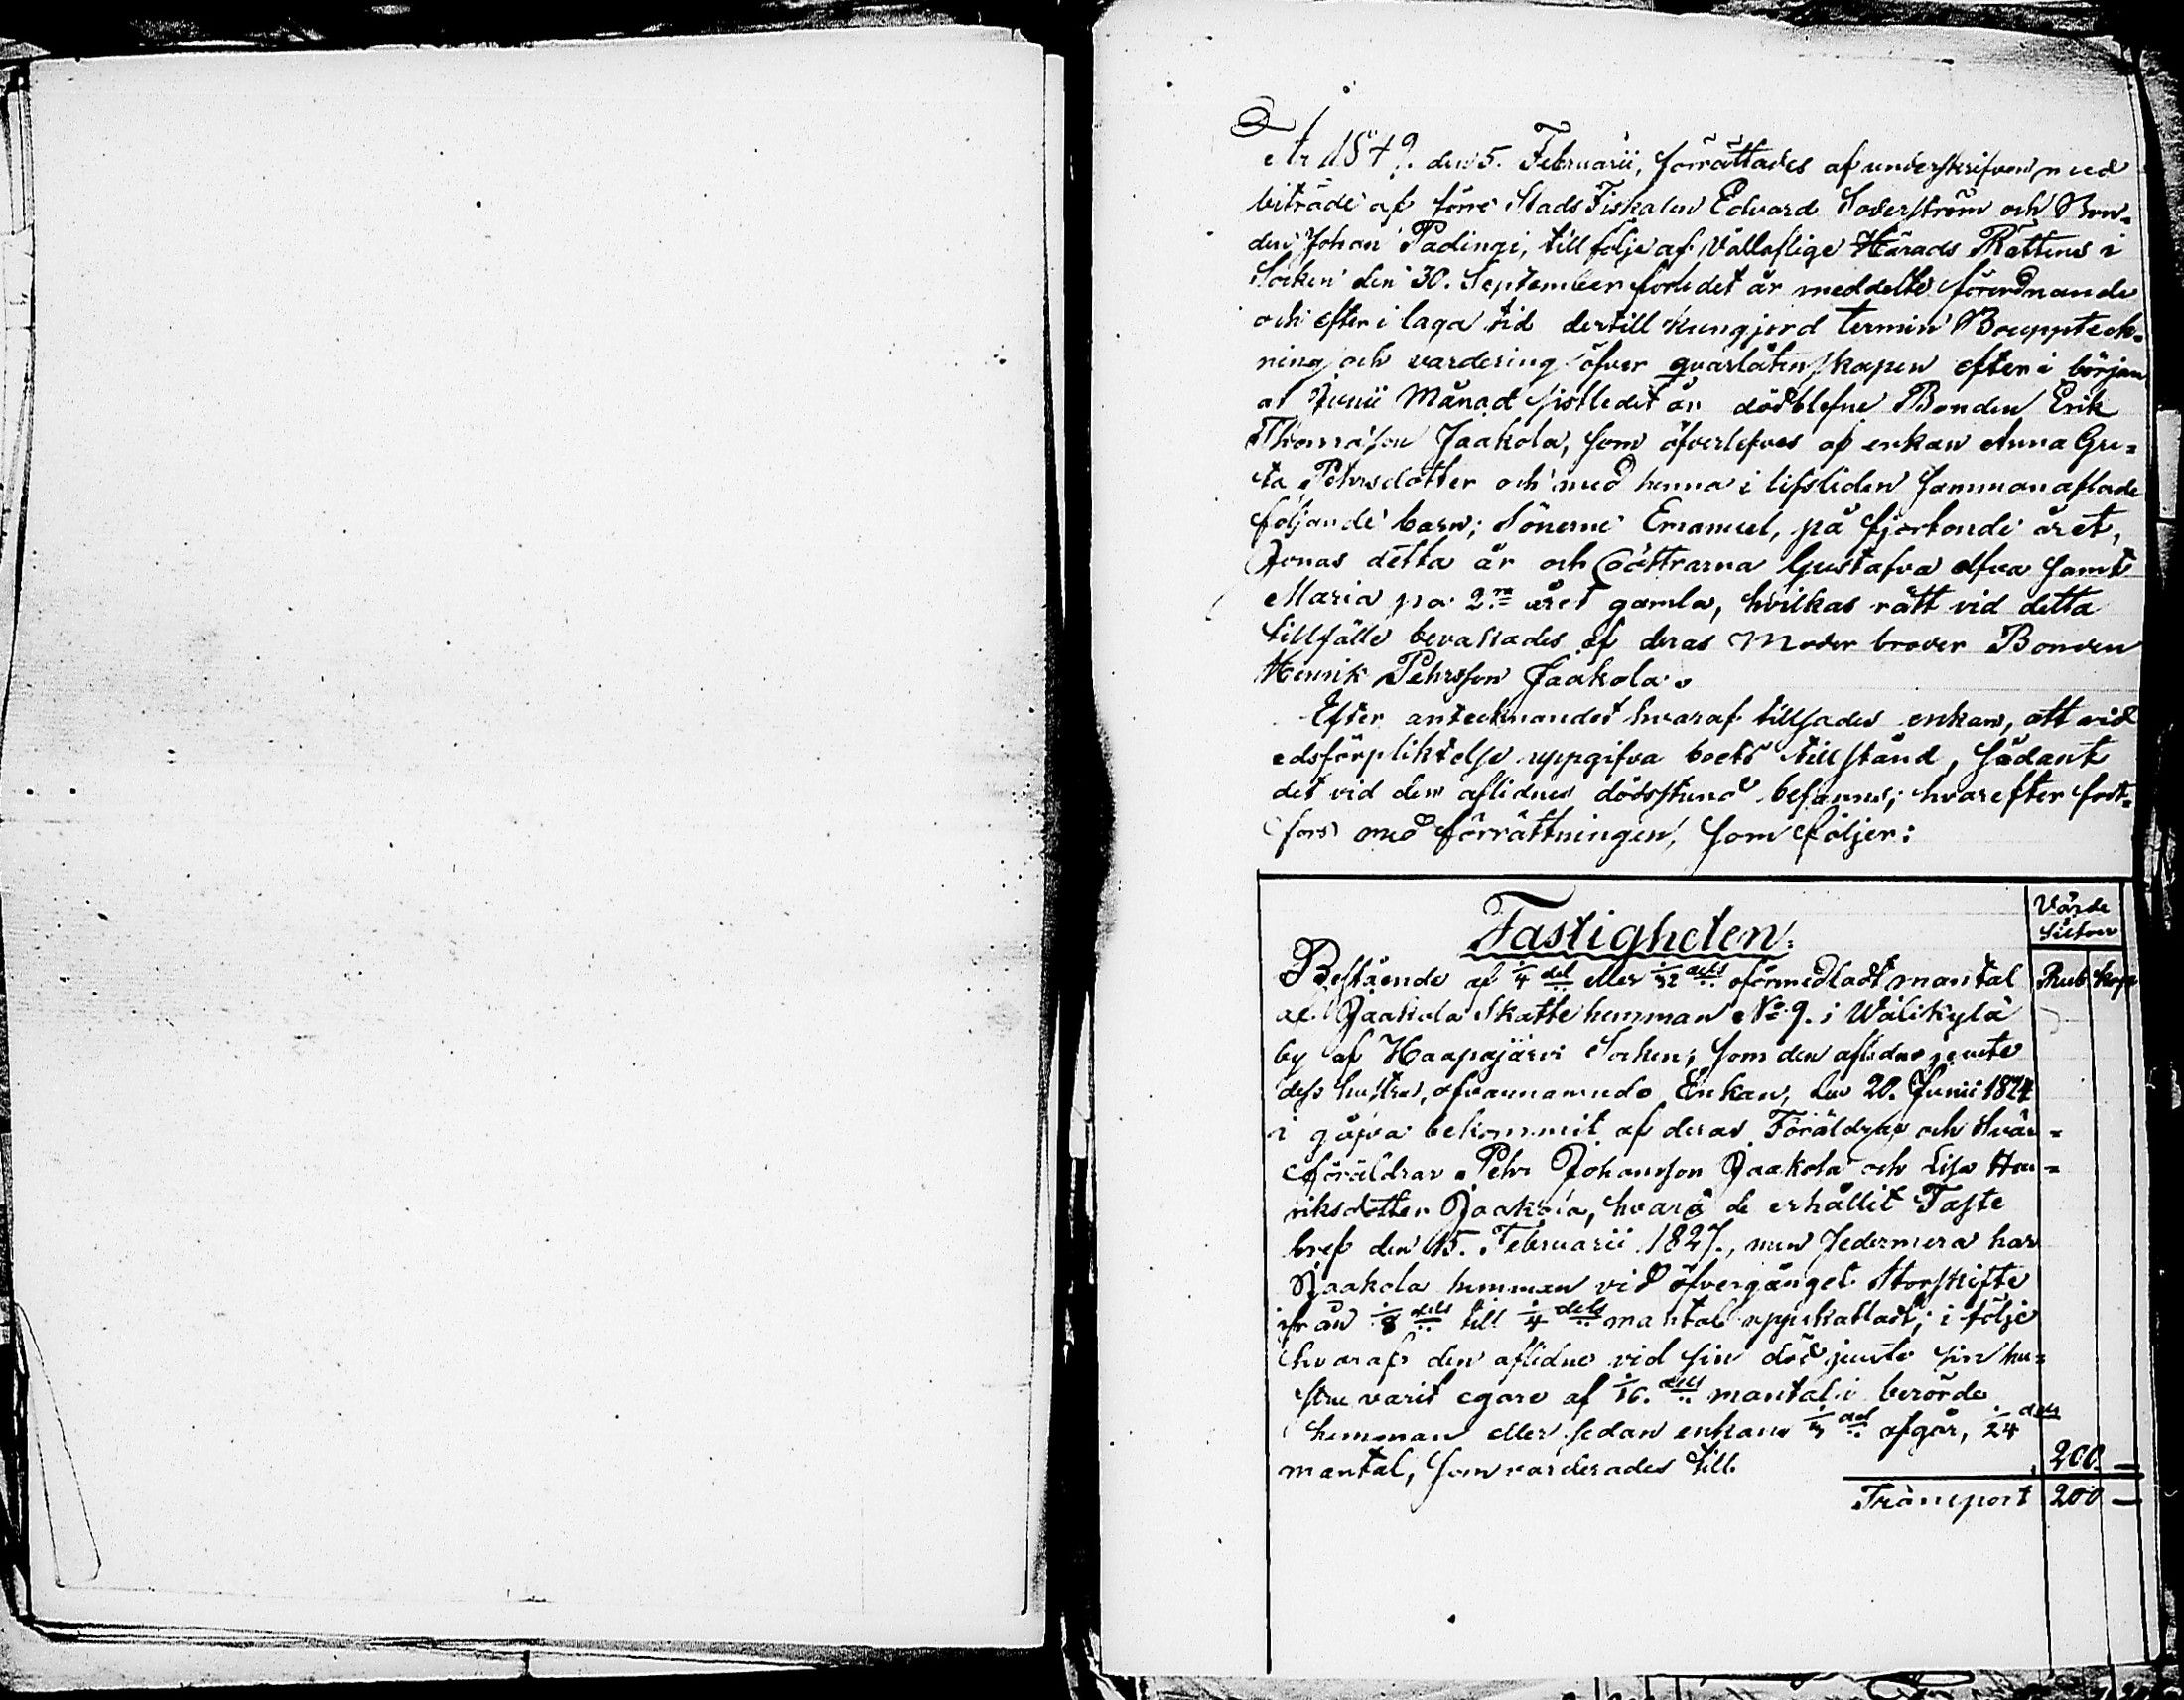 År 1849. den 5. Februarii, förrättades af underskrifven med
biträde af förre Stads Fiskalen Edvard Söderström och Bon=
den Johan Padingi, till följe af Vällofliga Härads Rättens i
Socken den 30. September förledet år meddelte förordnande
och efter i laga tid dertill kungjord termin Bouppteck=
ning och vardering öfver qvarlåtenskapen efter i början
af Junii Månad sistledet år dödblefne Bonden Erik
Thomasson Jaakola, som öfverlefves af enkan Anna Gre=
ta Pehrsdotter och med henne i lifstiden sammanaflade
följande barn; Sönerne Emanuel, på fjortonde året,
Jonas detta år och döttrarna Gustafva elfva samt
Maria på 2ra året gamla, hvilkas rätt vid detta
tillfälle bevakades af deras Moder broder Bonden
Henrik Pehrsson Jaakola.
Efter antecknandet hvaraf tillsades enkan, att vid
edsförpliktelse uppgifva boets tillstånd, sådant
det vid den aflidnes dödsstund befanns; hvarefter fort=
fors med förrättningen, som följer:
Fastigheten.
Värde
Silfver
Rub Kop
Bestående af 1/4 del eller 1/32 dels oförmedladt mantal
af Jaakola Skatte hemman No 9. i Wälikylä
by af Haapajärvi Socken, som den aflidne jemte
dess hustru, ofvannamnde Enkan, den 20. Junii 1824
i gåfva bekommit af deras Föräldrar och Svär=
föräldrar Pehr Johansson Jaakola och Lisa Hen=
riksdotter Jaakola, hvarå de erhållit Faste
bref den 15. Februarii 1827., men Jedermera har
Jaakola hemman vid öfvergånget Storskifte
ifrån 1/8 dels till 1/4 dels mantal uppskattadt; i följe
hvaraf den aflidne vid sin död jemte sin hu=
stru varit egare af 1/16. dels mantal i berörde
hemman eller sedan enkans 1/3 del afgår, 1/24 dels
mantal, som varderades till 200 —
Transport 200 —